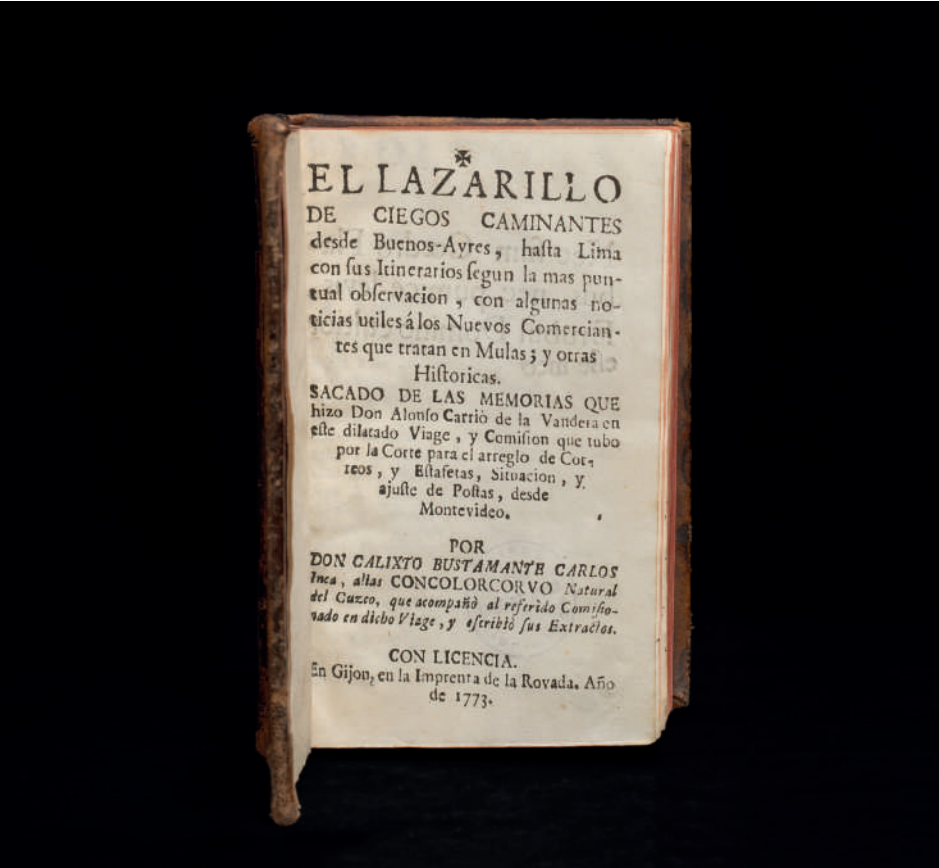 ✠
EL LAZARILLO
DE CIEGOS CAMINANTES
desde Buenos-Ayres, haſta Lima
con ſus Itinerarios ſegun la mas pun-
tual obſervacion, con algunas no-
ticias utiles á los Nuevos Comercian-
tes que tratan en Mulas; y otras
Hiſtoricas.
SACADO DE LAS MEMORIAS QUE
hizo Don Alonſo Carriò de la Vandera en
eſte dilatado Viage, y Comiſion que tubo
por la Corte para el arreglo de Cor-
reos, y Eſtafetas, Situacion, y
ajuſte de Poſtas, desde
Montevideo.
POR
DON CALIXTO BUSTAMANTE CARLOS
Inca, alias CONCOLORCORVO Natural
del Cuzco, que acompañò al referido Comiſio-
nado en dicho Viage, y eſcribiò ſus Extractos.
CON LICENCIA.
En Gijon, en la Imprenta de la Rovada. Año
de 1773.